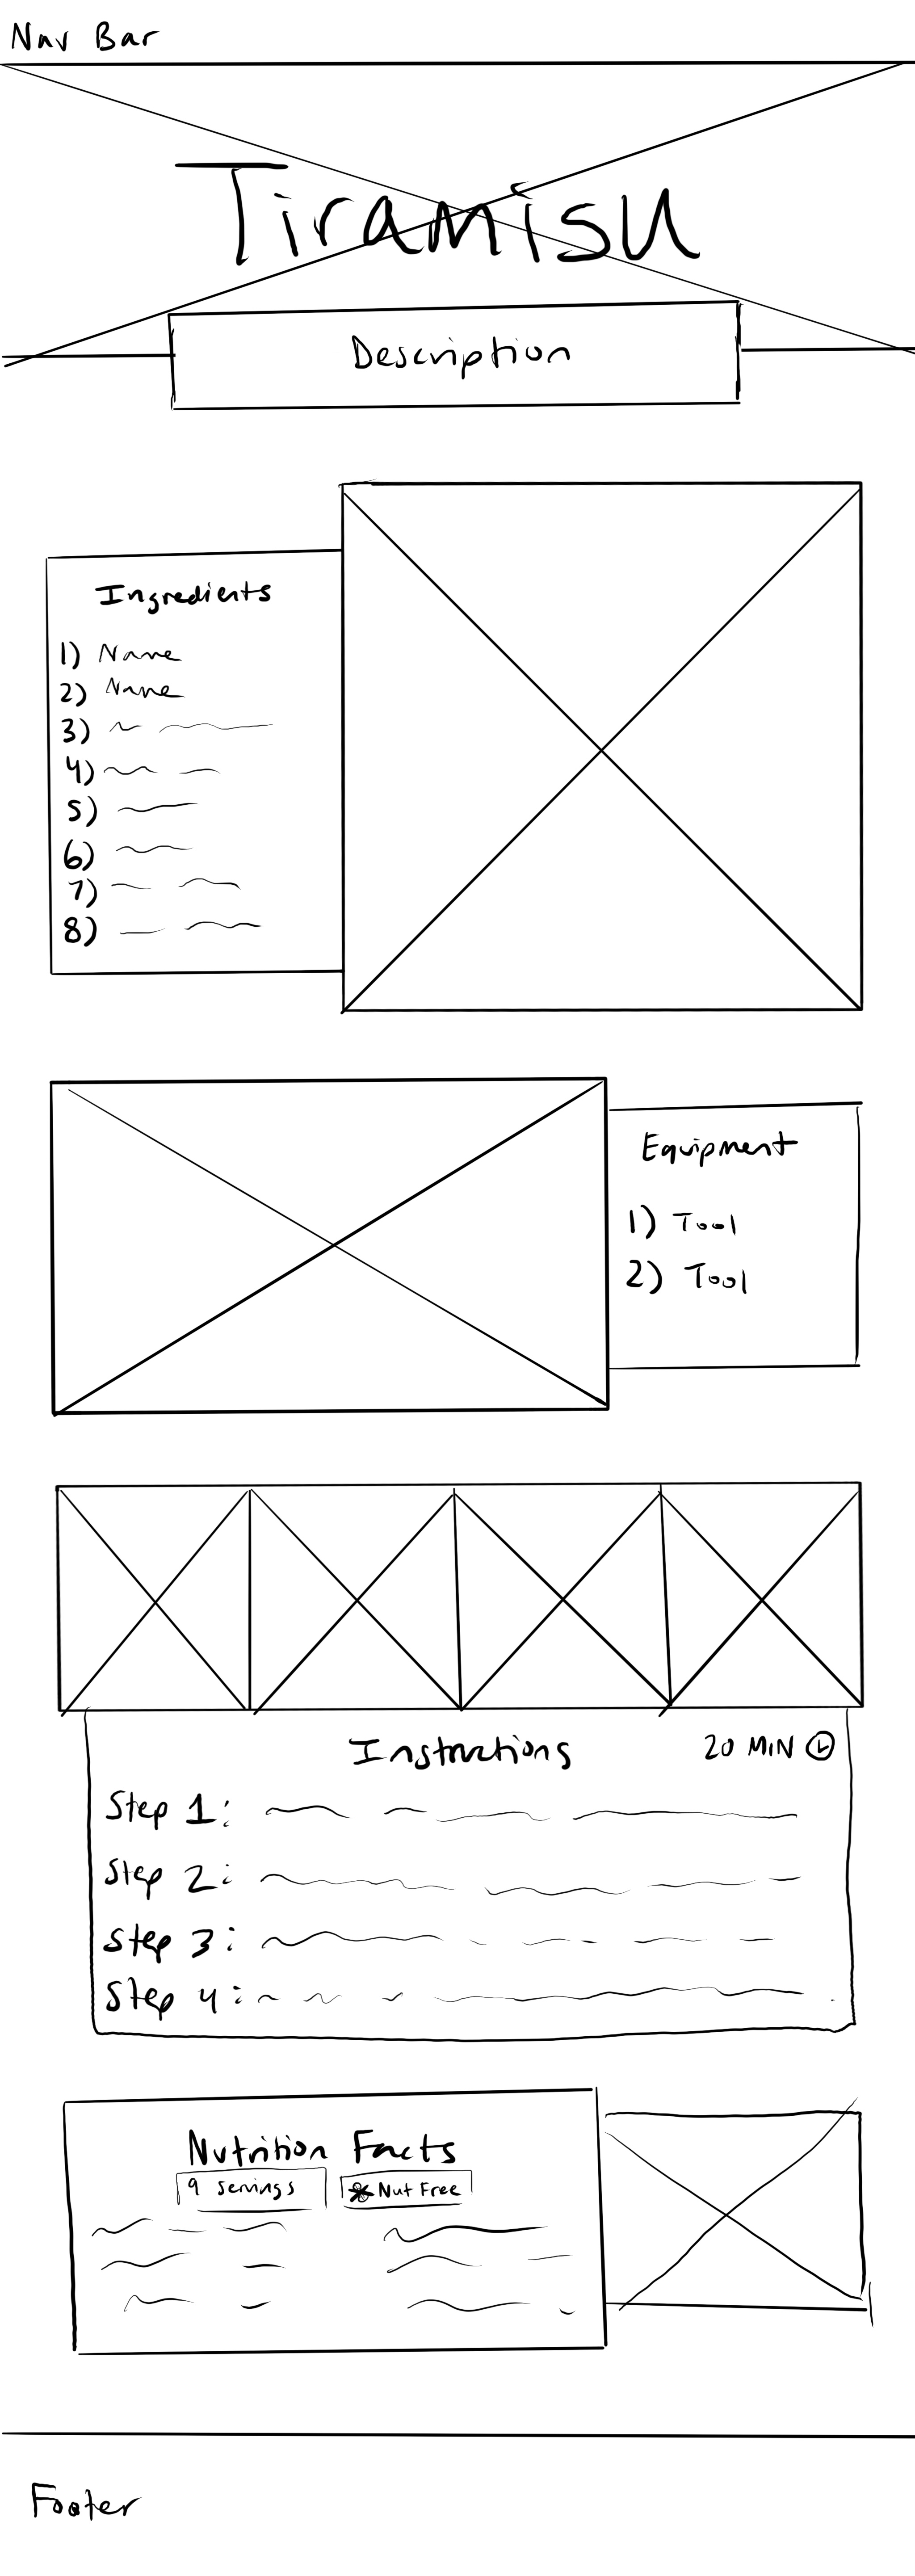 Nav Bar
Tiramisu
Description
Ingredients
1) Name
2) Name
3)
4)
5)
6)
7)
8)
Equipment
1) Tool
2) Tool
Instructions 20 MIN
Step 1:
Step 2:
Step 3:
Step 4:
Nutrition Facts
9 Servings Nut Free
Footer